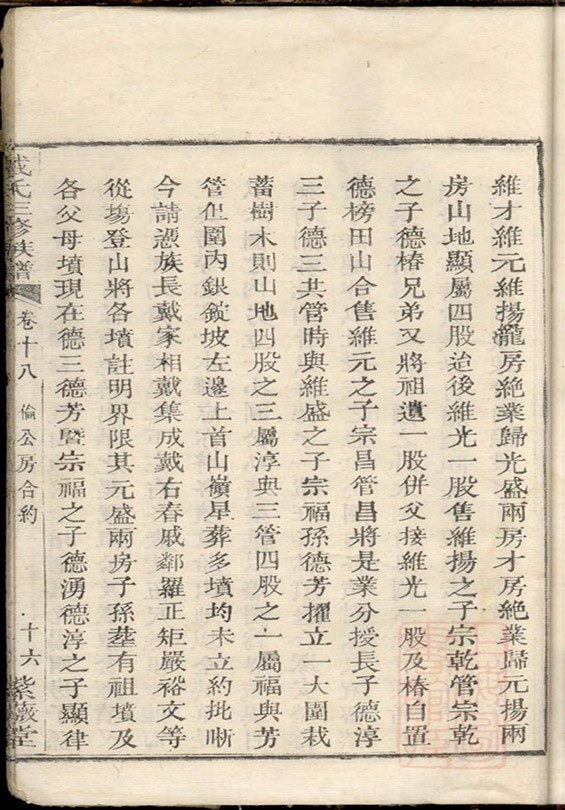 維才維元維揚龍房絶業歸光盛兩房才房絶業歸元揚兩
房山地顯屬四股迨後維光一股售維揚之子宗乾管宗乾
之子德椿兄弟又將祖遺一股併父接維光一股及椿自置
德榜田山合售維元之子宗昌管昌將是業分授長子德淳
三子德三共管時與維盛之子宗福孫德芳擢立一大圍栽
蓄樹木則山地四股之三屬淳與三管四股之一屬福與芳
管但圍內銀錠坡左邊上首山嶺星葬多墳均未立約批晰
今請憑族長戴家相戴集成戴右春戚鄰羅正矩嚴裕文等
從塲登山將各墳註明界限其元盛兩房子孫塟有祖墳及
各父母墳現在德三德芳曁宗福之子德湧德淳之子顯律
戴氏三修族譜 卷十八 倫公房合約 十六 紫薇堂